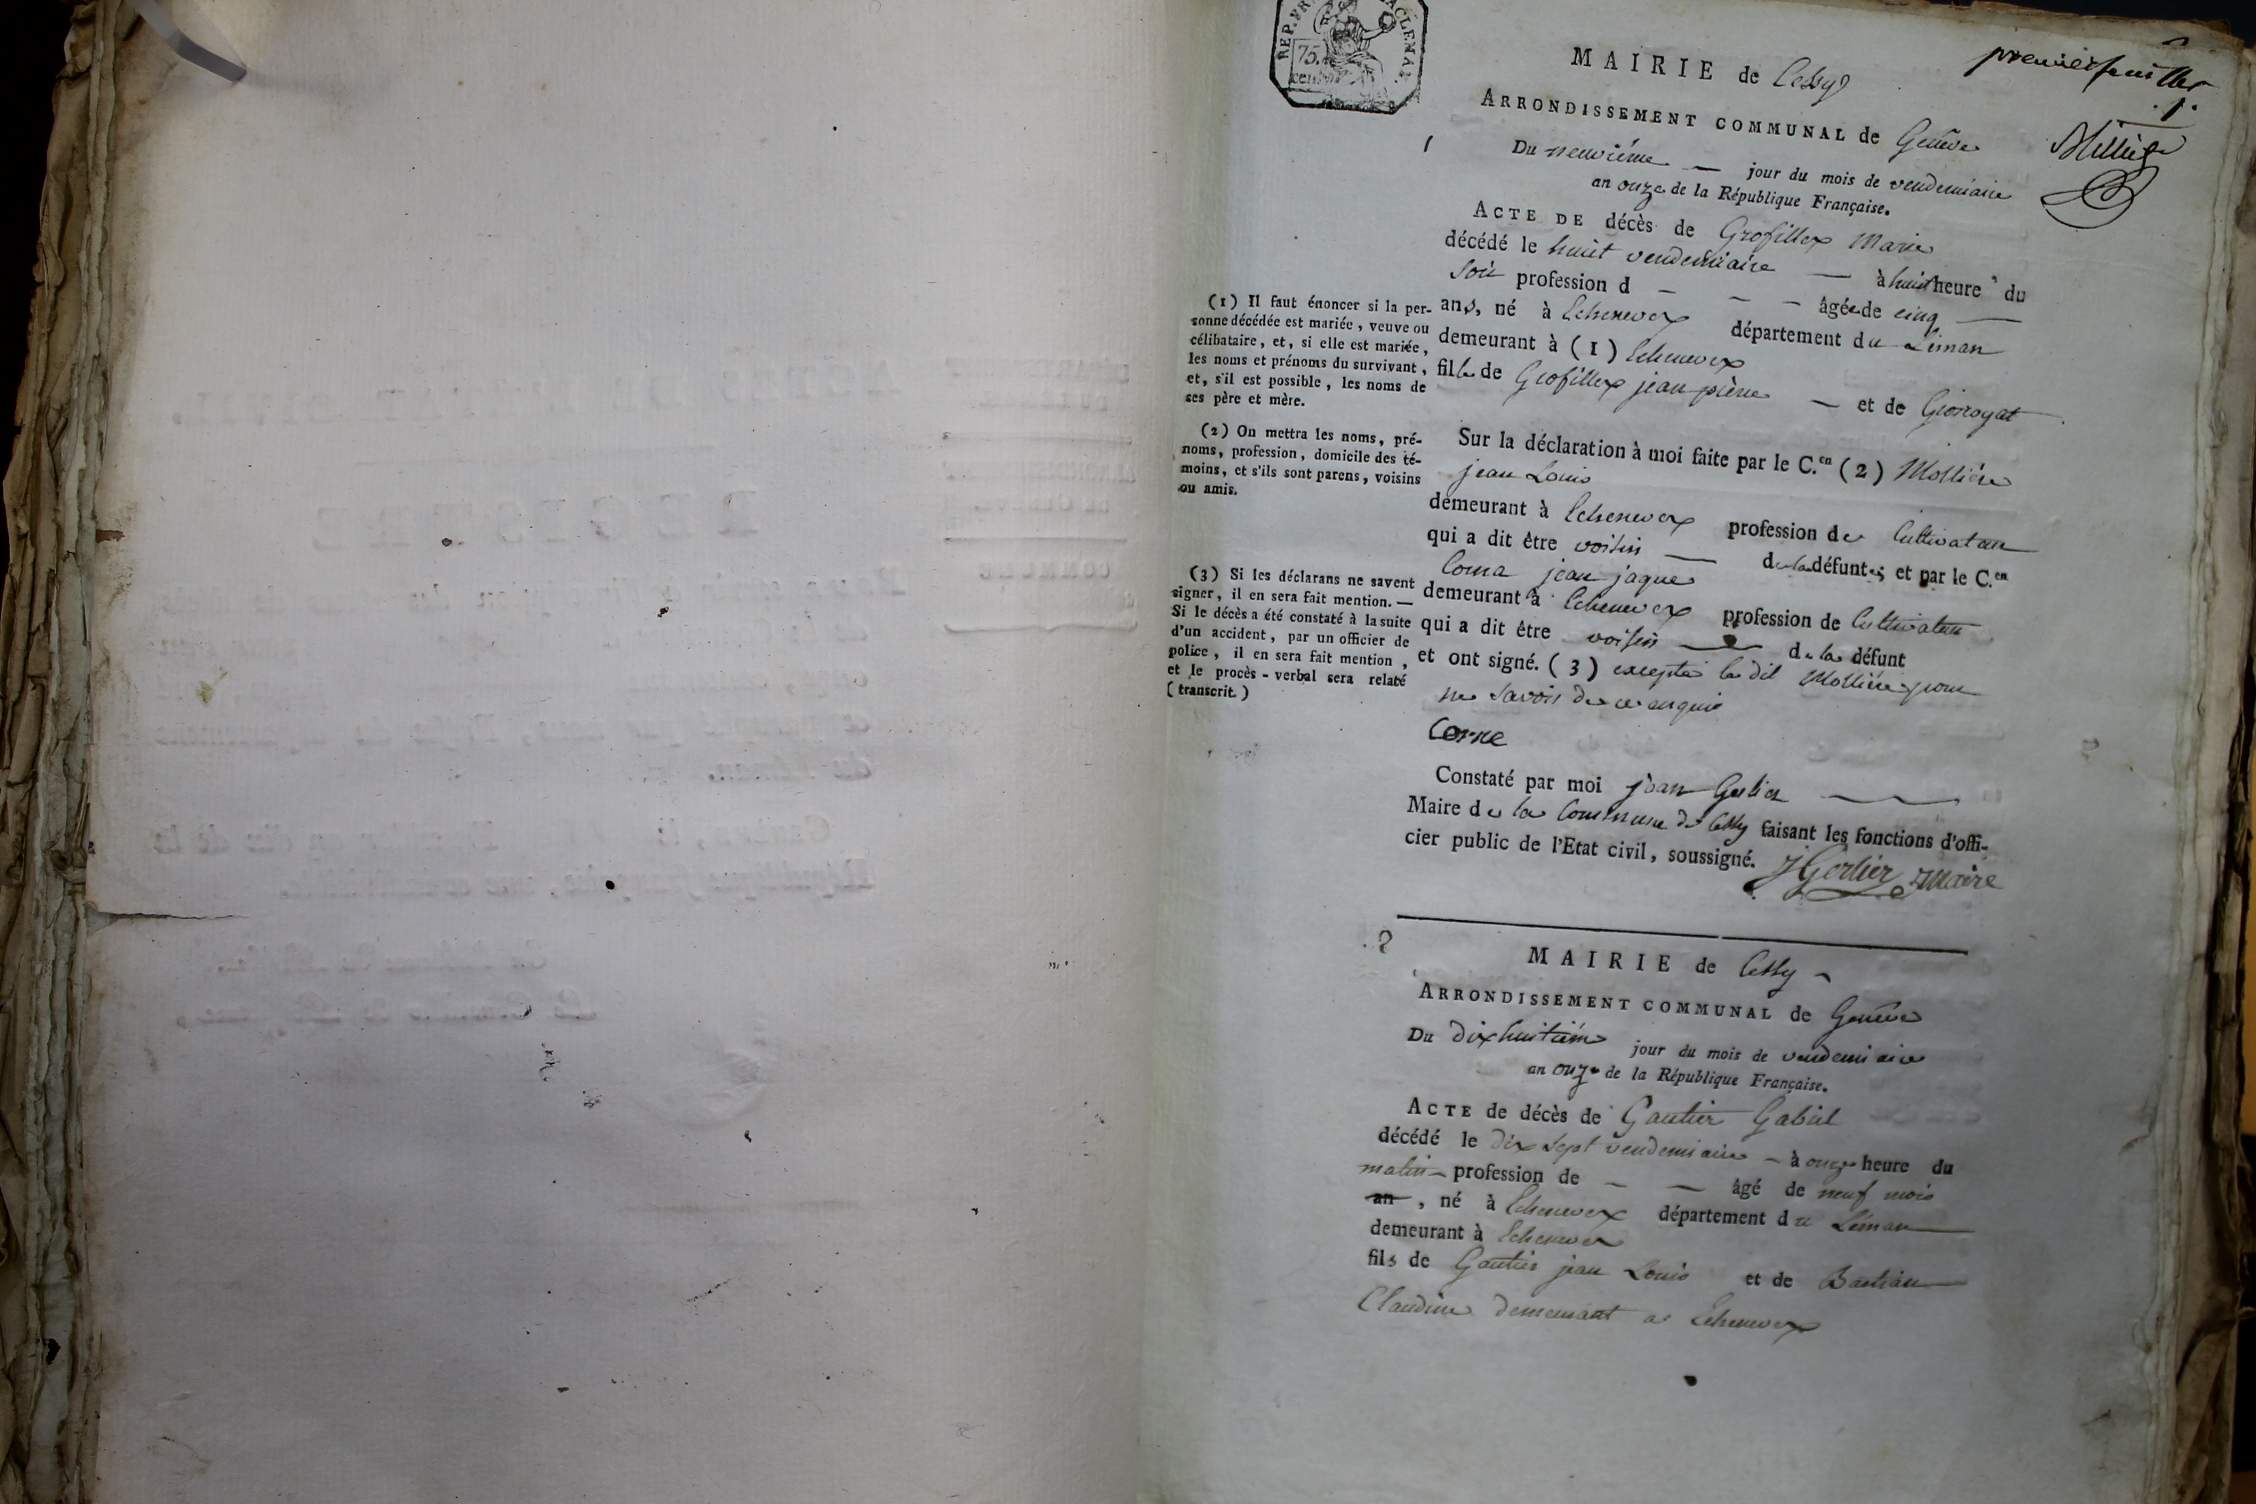 REP. FRA
75.
cent.
premier feuillet
1.
MAIRIE de Cessy
ARRONDISSEMENT COMMUNAL de Genève
1 Du neuvième — jour du mois de vendemiaire
an onze de la République Française.
ACTE DE décès de Grofillex Marie
décédé le huit vendemiaire — à huit heure du
soir profession d — — — âgée de cinq —
ans, né à Echenevex département du Léman
demeurant à (1) Echenevex
fille de Grofillex jean pierre — et de
Sur la déclaration à moi faite par le C.en (2) Mollière
jean Louis
demeurant à Echenevex profession de Cultivateur
qui a dit être voisin — de la défunte; et par le C.en
jean jaque
demeurant à Echenevex profession de Cultivateur
qui a dit être voisin — de la défunt
et ont signé. (3) excepté le dit Mollière pour
ne savoir de ce enquis
Corne
Constaté par moi jean Gerlier
Maire de la Commune de Cessy faisant les fonctions d'offi-
cier public de l'Etat civil, soussigné. J Gerlier Maire
(1) Il faut énoncer si la per-
sonne décédée est mariée, veuve ou
célibataire, et, si elle est mariée,
les noms et prénoms du survivant,
et, s'il est possible, les noms de
ses père et mère.
(2) On mettra les noms, pré-
noms, profession, domicile des té-
moins, et s'ils sont parens, voisins
ou amis.
(3) Si les déclarans ne savent
signer, il en sera fait mention. —
Si le décès a été constaté à la suite
d'un accident, par un officier de
police, il en sera fait mention,
et le procès-verbal sera relaté
(transcrit.)
2
MAIRIE de Cessy
ARRONDISSEMENT COMMUNAL de Genève
Du dixhuitième jour du mois de vendemiaire
an onze de la République Française.
ACTE de décès de Gautier Gabriel
décédé le dix sept vendemiaire — à onze heure du
matin — profession de — — âgé de neuf mois
an, né à Echenevex département du Léman
demeurant à Echenevex
fils de Gautier jean Louis et de Bastian
Claudine demeurant a Echenevex